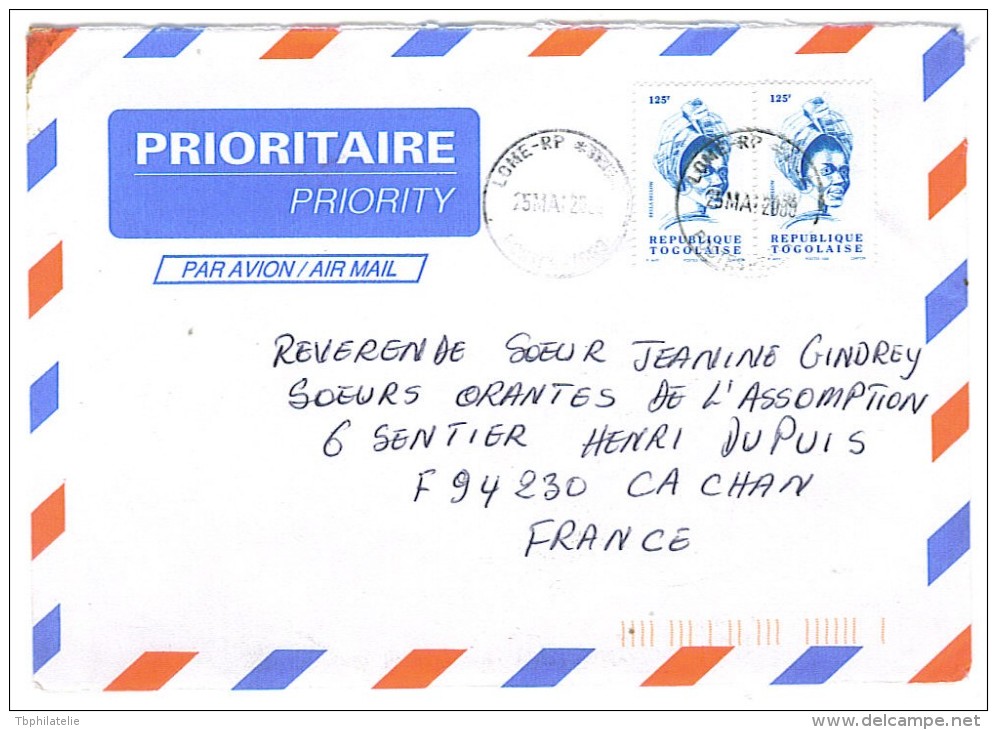 PRIORITAIRE
PRIORITY
PAR AVION / AIR MAIL
LOME-RP
25MAI20
125F
125F
LOME-RP
25MAI20
REPUBLIQUE
TOGOLAISE
REPUBLIQUE
TOGOLAISE
REVERENDE SOEUR JEANINE GINDREY
SOEURS ORANTES DE L'ASSOMPTION
6 SENTIER HENRI DUPUIS
F 94230 CACHAN
FRANCE
Tbphilatelie
www.delcampe.net